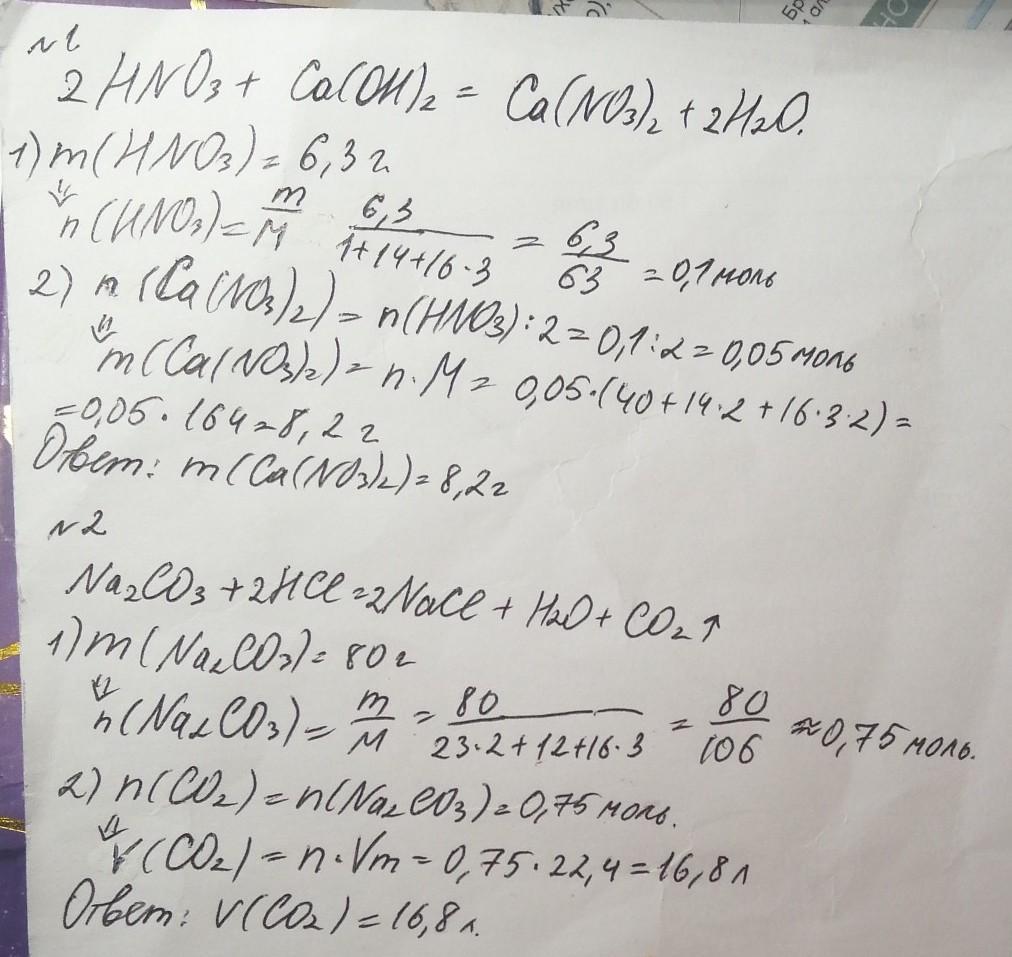 бр
ал
НО
№1
2HNO₃ + Ca(OH)₂ = Ca(NO₃)₂ + 2H₂O.
1) m(HNO₃) = 6,3 г
⇓ n(HNO₃) = m/M 6,3/(1+14+16·3) = 6,3/63 = 0,1 моль
2) n(Ca(NO₃)₂) = n(HNO₃):2 = 0,1:2 = 0,05 моль
⇓ m(Ca(NO₃)₂) = n·M = 0,05·(40+14·2+16·3·2) =
= 0,05·164 = 8,2 г
Ответ: m(Ca(NO₃)₂) = 8,2г
№2
Na₂CO₃ + 2HCl = 2NaCl + H₂O + CO₂↑
1) m(Na₂CO₃) = 80г
⇓ n(Na₂CO₃) = m/M = 80/(23·2+12+16·3) = 80/106 ≈ 0,75 моль.
2) n(CO₂) = n(Na₂CO₃) = 0,75 моль.
⇓ V(CO₂) = n·Vm = 0,75·22,4 = 16,8 л
Ответ: V(CO₂) = 16,8 л.